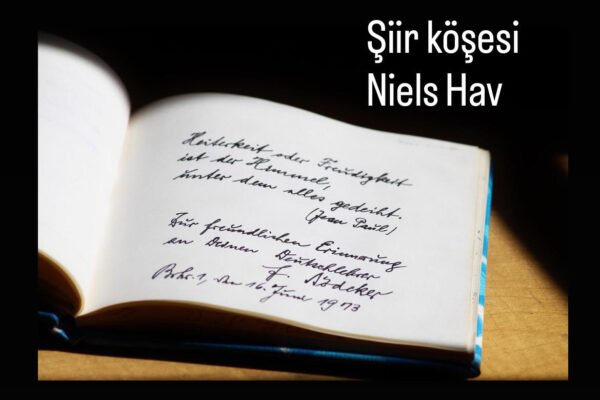 Şiir köşesi
Niels Hav
Heiterkeit oder Freudigkeit
ist der Himmel,
unter dem alles gedeiht.
(Jean Paul)
Zur freundlichen Erinnerung
an Deinen Deutschlehrer
F. Rödeker
den 16. Juni 1973